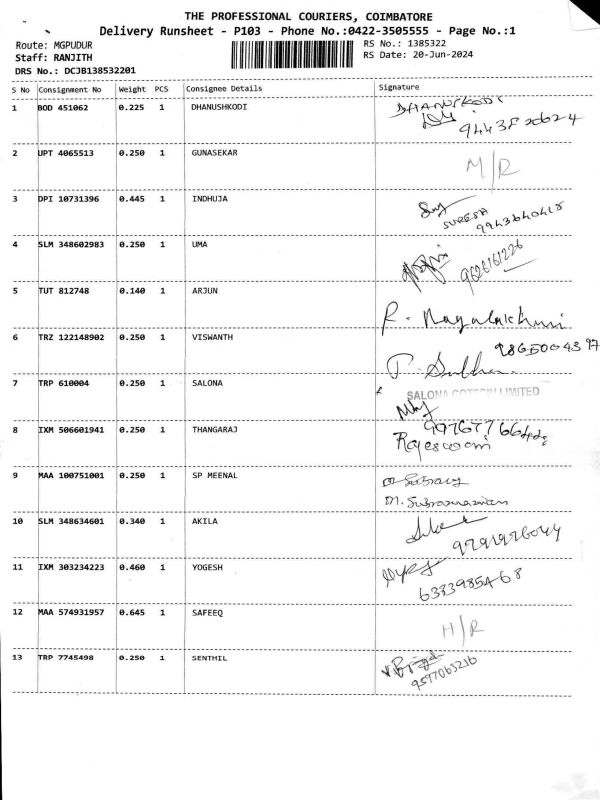 THE PROFESSIONAL COURIERS, COIMBATORE
Delivery Runsheet - P103 - Phone No.:0422-3505555 - Page No.:1
Route: MGPUDUR
RS No.: 1385322
Staff: RANJITH
RS Date: 20-Jun-2024
DRS No.: DCJB138532201
S No Consignment No Weight PCS Consignee Details Signature
1 BOD 451062 0.225 1 DHANUSHKODI DHANUSKODI
2 UPT 4065513 0.250 1 GUNASEKAR M/R
3 DPI 10731396 0.445 1 INDHUJA
SURESH
4 SLM 348602983 0.250 1 UMA 9626161226
5 TUT 812748 0.140 1 ARJUN
6 TRZ 122148902 0.250 1 VISWANTH
7 TRP 610004 0.250 1 SALONA SALONA COTSPIN LIMITED
8 IXM 506601941 0.250 1 THANGARAJ
9 MAA 100751001 0.250 1 SP MEENAL
M. Subramanian
10 SLM 348634601 0.340 1 AKILA
11 IXM 303234223 0.460 1 YOGESH
6383985468
12 MAA 574931957 0.645 1 SAFEEQ H/R
13 TRP 7745498 0.250 1 SENTHIL
9597065216